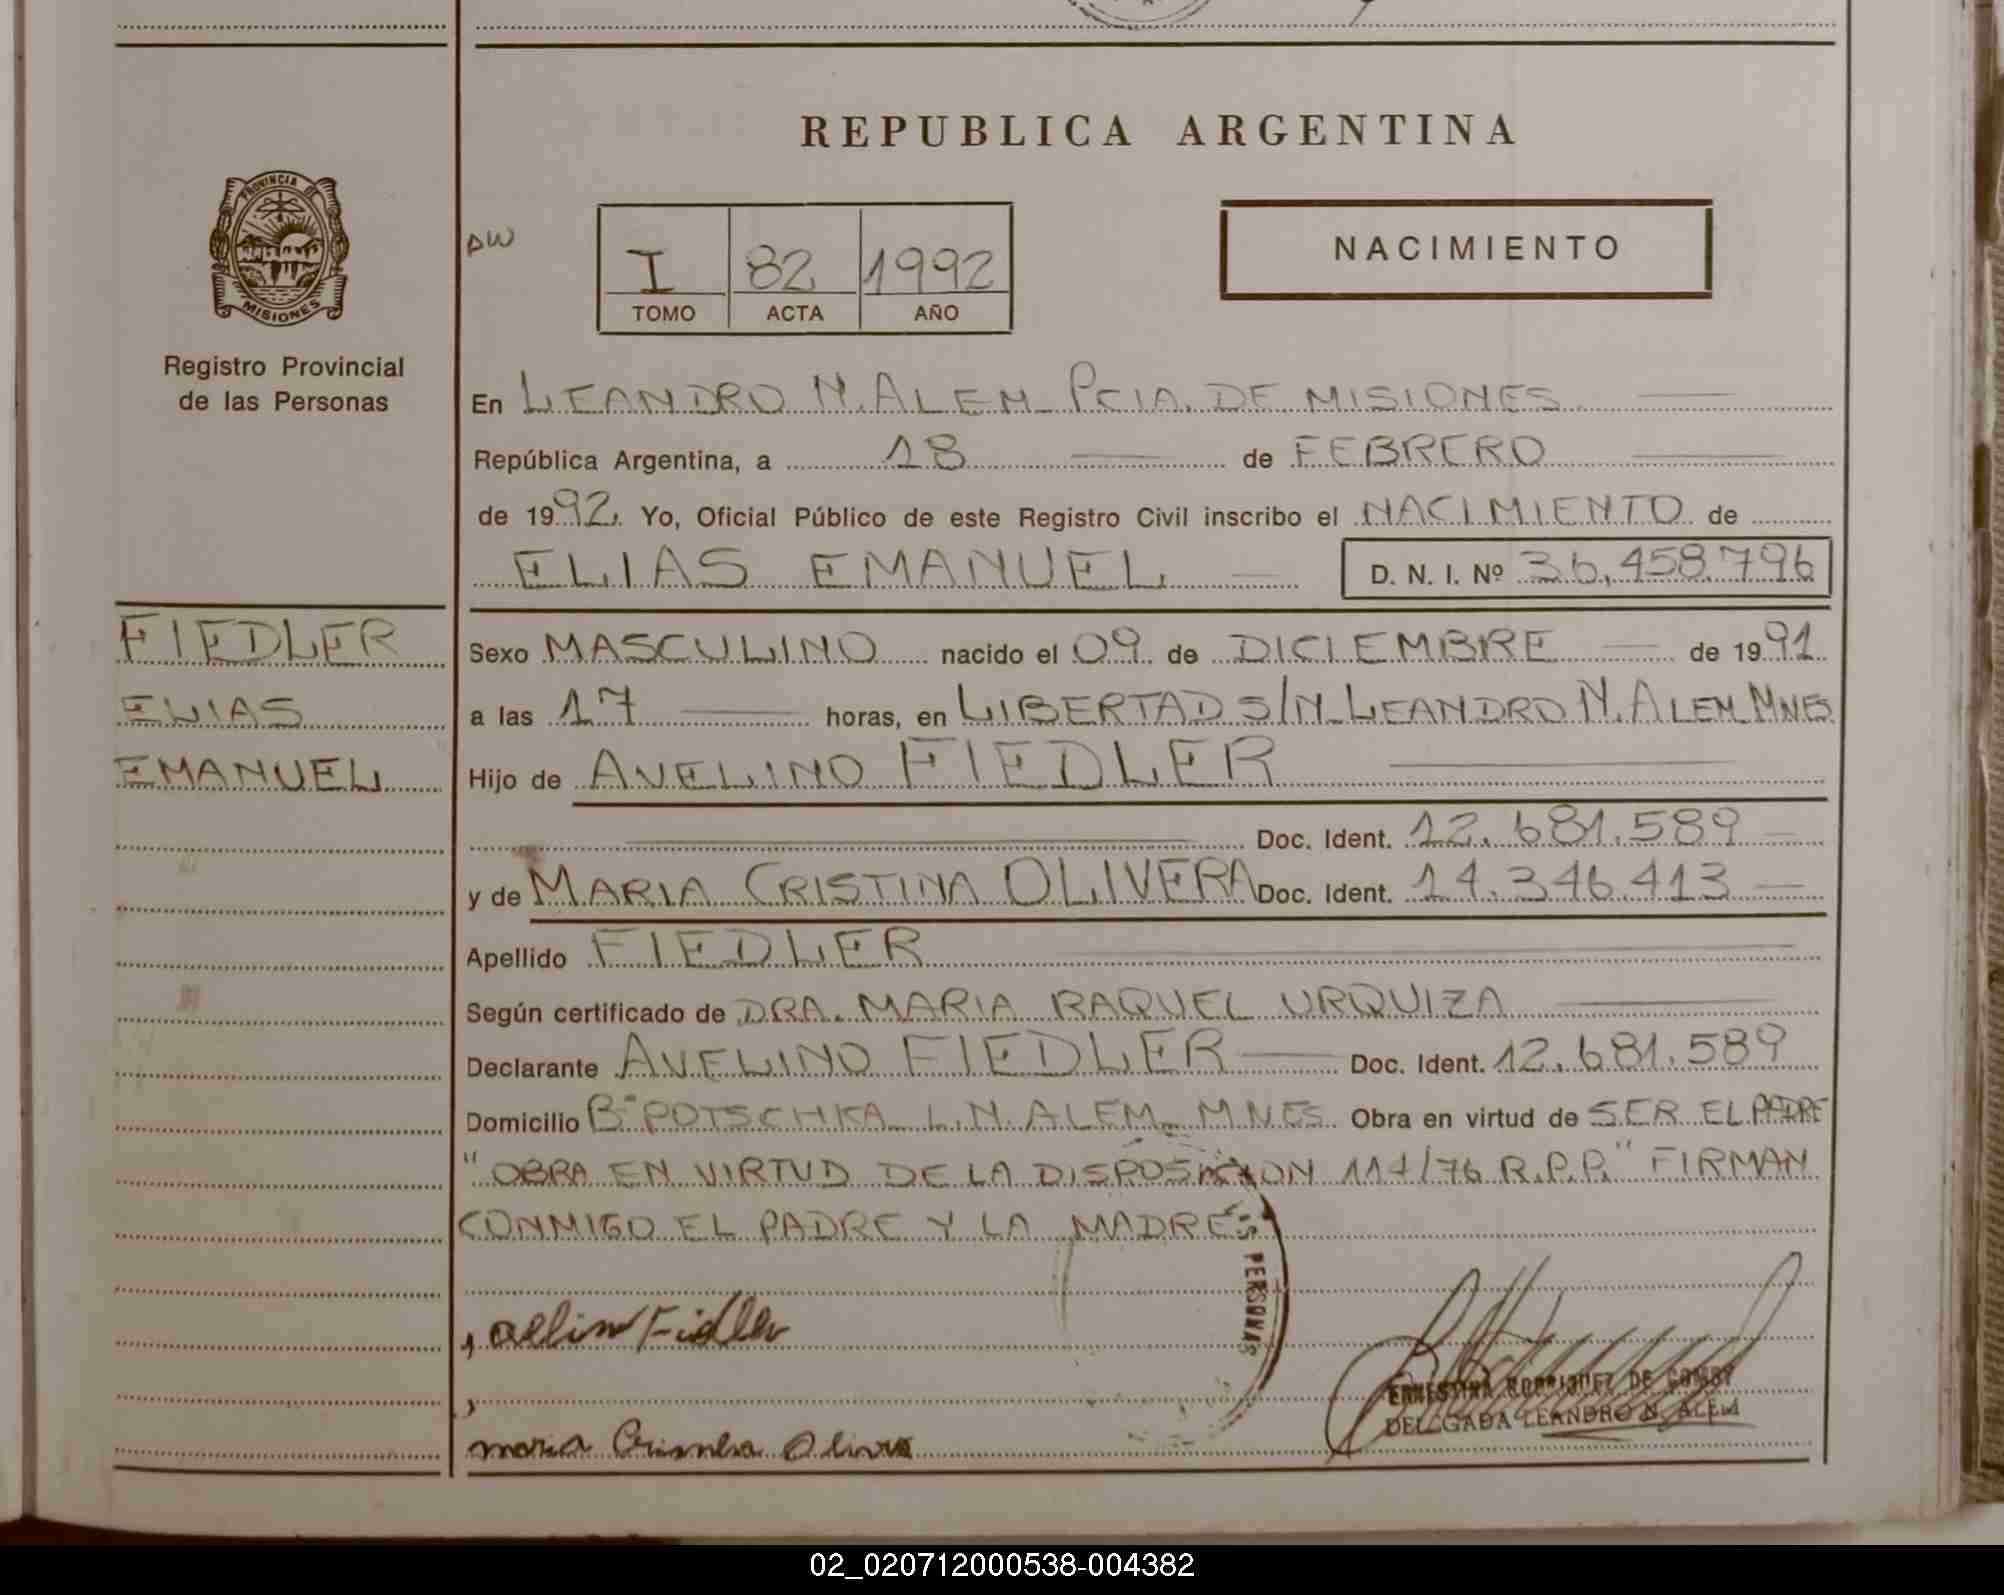 REPUBLICA ARGENTINA
PROVINCIA DE
MISIONES
Registro Provincial
de las Personas
DW
I 82 1992
TOMO ACTA AÑO
NACIMIENTO
En LEANDRO N. ALEM PCIA. DE MISIONES
República Argentina, a 18 de FEBRERO
de 1992. Yo, Oficial Público de este Registro Civil inscribo el NACIMIENTO de
ELIAS EMANUEL D. N. I. Nº 36,458.796
FIEDLER
ELIAS
EMANUEL
Sexo MASCULINO nacido el 09 de DICIEMBRE de 1991
a las 17 horas, en LIBERTAD S/N LEANDRO N. ALEM MNES
Hijo de AVELINO FIEDLER
Doc. Ident. 12.681.589
y de MARIA CRISTINA OLIVERA Doc. Ident. 14.346.413
Apellido FIEDLER
Según certificado de DRA. MARIA RAQUEL URQUIZA
Declarante AVELINO FIEDLER Doc. Ident. 12.681.589
Domicilio Bº POTSCHKA L.N. ALEM MNES. Obra en virtud de SER EL PADRE
"OBRA EN VIRTUD DE LA DISPOSICION 114/76 R.P.P." FIRMAN
CONMIGO EL PADRE Y LA MADRE
AS PERSONAS
ERNESTINA RODRIGUEZ DE
DELEGADA LEANDRO N. ALEM
maria Olivera
02_020712000538-004382